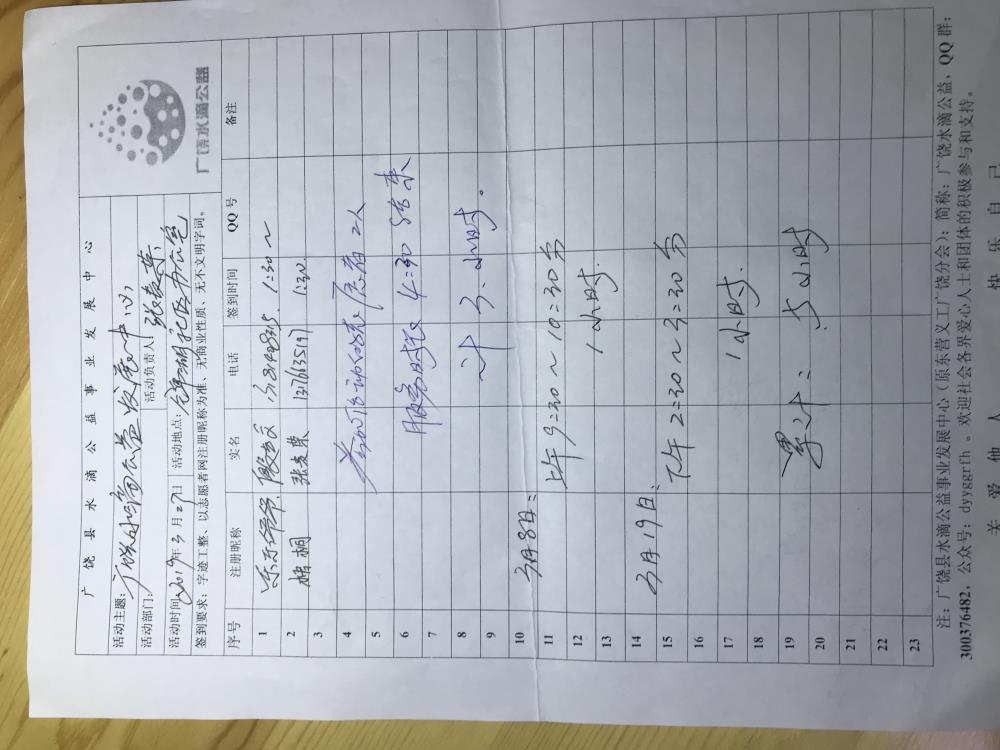 广饶县水滴公益事业发展中心
广饶水滴公益
活动主题：广饶水滴公益发展中心
活动部门： 活动负责人：张友荣
活动时间：2019年3月27日 活动地点：锦湖社区办公室
签到要求：字迹工整、以志愿者网注册昵称为准、无商业性质、无不文明字词。
序号 注册昵称 实名 电话 签到时间 QQ号 备注
1 东东爷爷 1:30~
2 梧桐 张友荣 1:30
3
4 参加活动的志愿者2人
5
6 服务时长 4:30结束
7
8 计3小时。
9
10 3月8日：
11 上午9=30~10=30分
12 1小时.
13
14 3月19日：
15 下午2=30~3=30分
16
17 1小时.
18
19 累计=5小时
20
21
22
23
注：广饶县水滴公益事业发展中心（原东营义工广饶分会）；简称：广饶水滴公益，QQ群：
300376482，公众号：dyyggrth。欢迎社会各界爱心人士和团体的积极参与和支持。
关爱他人 快乐自己